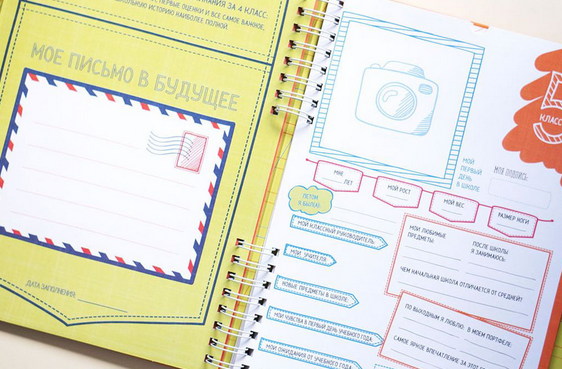 НАНИЯ ЗА 4 КЛАСС:
С ПЕРВЫЕ ОЦЕНКИ И ВСЕ САМОЕ ВАЖНОЕ,
ИСТОРИЮ НАИБОЛЕЕ ПОЛНОЙ.
МОЕ ПИСЬМО В БУДУЩЕЕ
ДАТА ЗАПОЛНЕНИЯ:
5
КЛАСС
МОЙ
ПЕРВЫЙ
ДЕНЬ
В ШКОЛЕ
МОЯ ПОДПИСЬ:
МНЕ
ЛЕТ
МОЙ РОСТ
МОЙ ВЕС
РАЗМЕР НОГИ
ЛЕТОМ
Я БЫЛ(А):
МОЙ КЛАССНЫЙ РУКОВОДИТЕЛЬ:
МОИ УЧИТЕЛЯ:
НОВЫЕ ПРЕДМЕТЫ В ШКОЛЕ:
МОИ ЧУВСТВА В ПЕРВЫЙ ДЕНЬ УЧЕБНОГО ГОДА
МОИ ОЖИДАНИЯ ОТ УЧЕБНОГО ГОДА
МОИ ЛЮБИМЫЕ
ПРЕДМЕТЫ:
ПОСЛЕ ШКОЛЫ
Я ЗАНИМАЮСЬ:
ЧЕМ НАЧАЛЬНАЯ ШКОЛА ОТЛИЧАЕТСЯ ОТ СРЕДНЕЙ?
ПО ВЫХОДНЫМ Я ЛЮБЛЮ:
В МОЕМ ПОРТФЕЛЕ:
САМОЕ ЯРКОЕ ВПЕЧАТЛЕНИЕ ЗА ЭТОТ